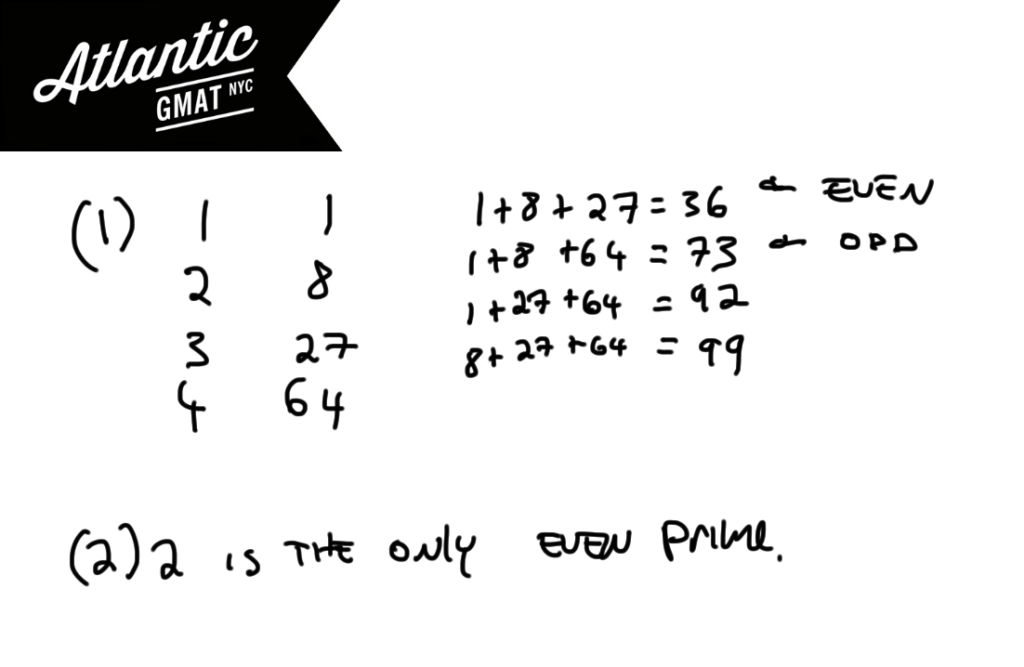 Atlantic
GMAT NYC
(1) 1 1
2 8
3 27
4 64
1+8+27=36 ← EVEN
1+8+64=73 ← ODD
1+27+64=92
8+27+64=99
(2) 2 is THE ONLY EVEN PRIME.